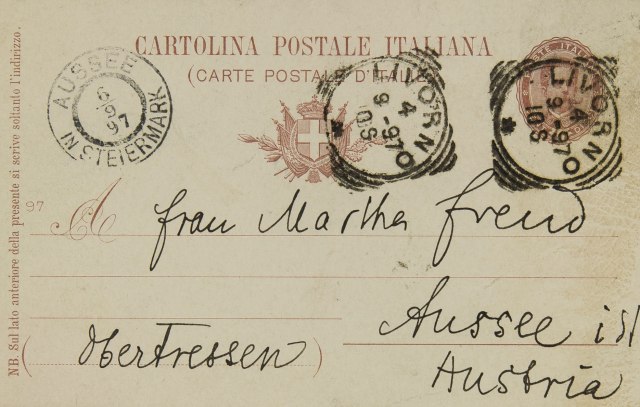 CARTOLINA POSTALE ITALIANA
(CARTE POSTALE D'ITALIE)
AUSSEE
6
9
97
IN STEIERMARK
LIVORNO
4
9-97
10S
*
POSTE ITAL
LIVORNO
4
9-97
10S
*
97
A Frau Martha Freud
Aussee i/St
(Obertressen)
Austria
NB. Sul lato anteriore della presente si scrive soltanto l'indirizzo.